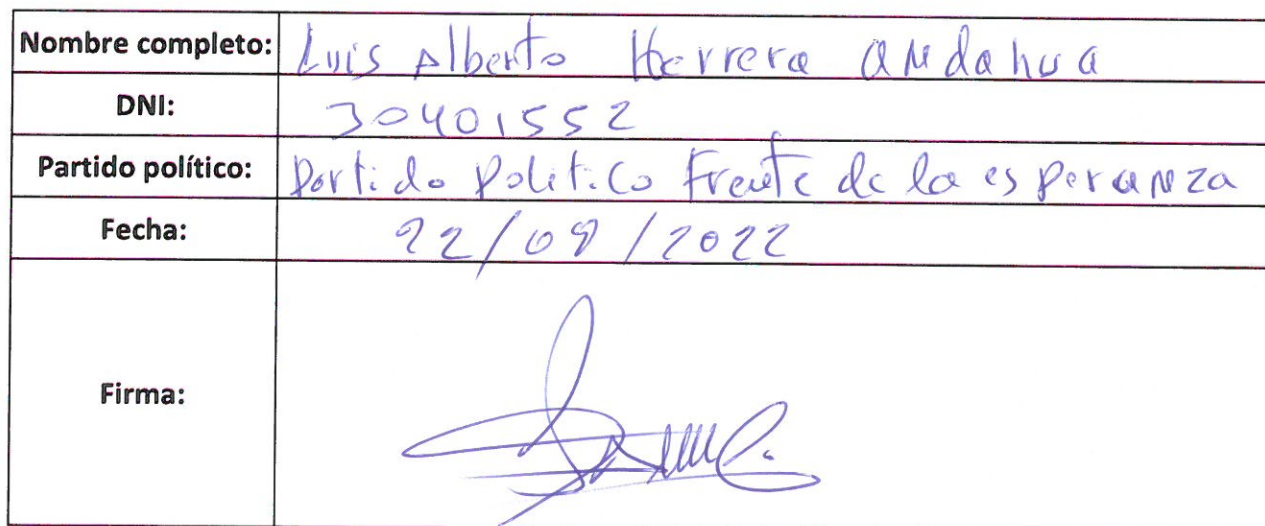 Nombre completo: Luis Alberto Herrera andahua
DNI: 30401552
Partido político: Partido Politico Frente de la esperanza
Fecha: 22/09/2022
Firma: